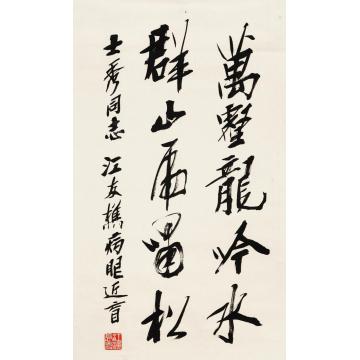 萬壑龍吟水
群山虎嘯松
士秀同志 江友樵病眼近盲